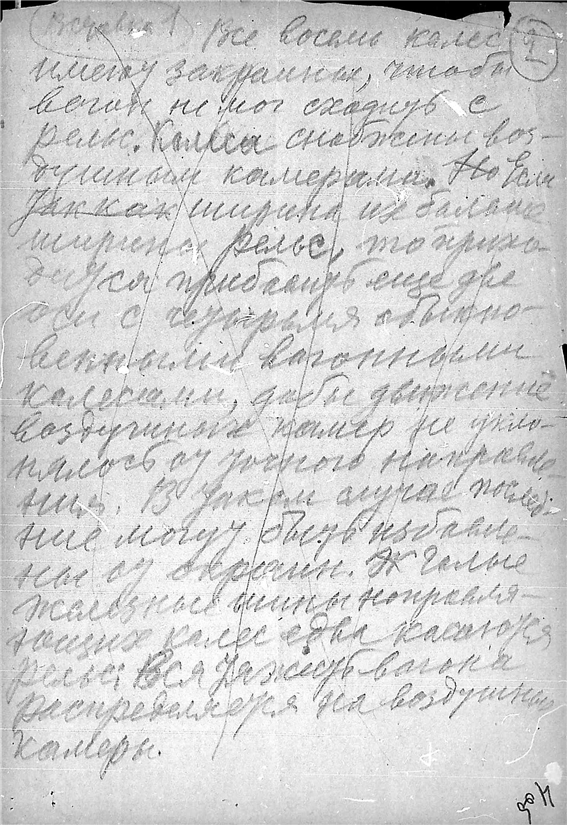 Вставка 1
2
Все восемь колес
имеют закраины, чтобы
вагон не мог сходить с
рельс. Колеса снабжены воз-
душными камерами. Но Если
Так как ширина их больше
ширины рельс, то прихо-
дится прибавить еще две
оси с четырьмя обыкно-
венными вагонными
колесами, дабы движение
воздушных камер не укло-
нялось от точного направле-
ния. В таком случае послед-
ние могут быть избавле-
ны от окраин. Голые
железные шины направля-
ющих колес едва касаются
рельс. Вся тяжесть вагона
распределяется на воздушные
камеры.